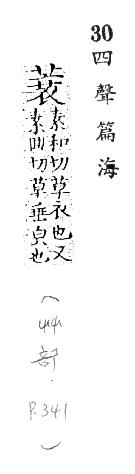 30四聲篇海
蓑
素和切草衣也又
素回切草垂皃也
(艸部 P.341)